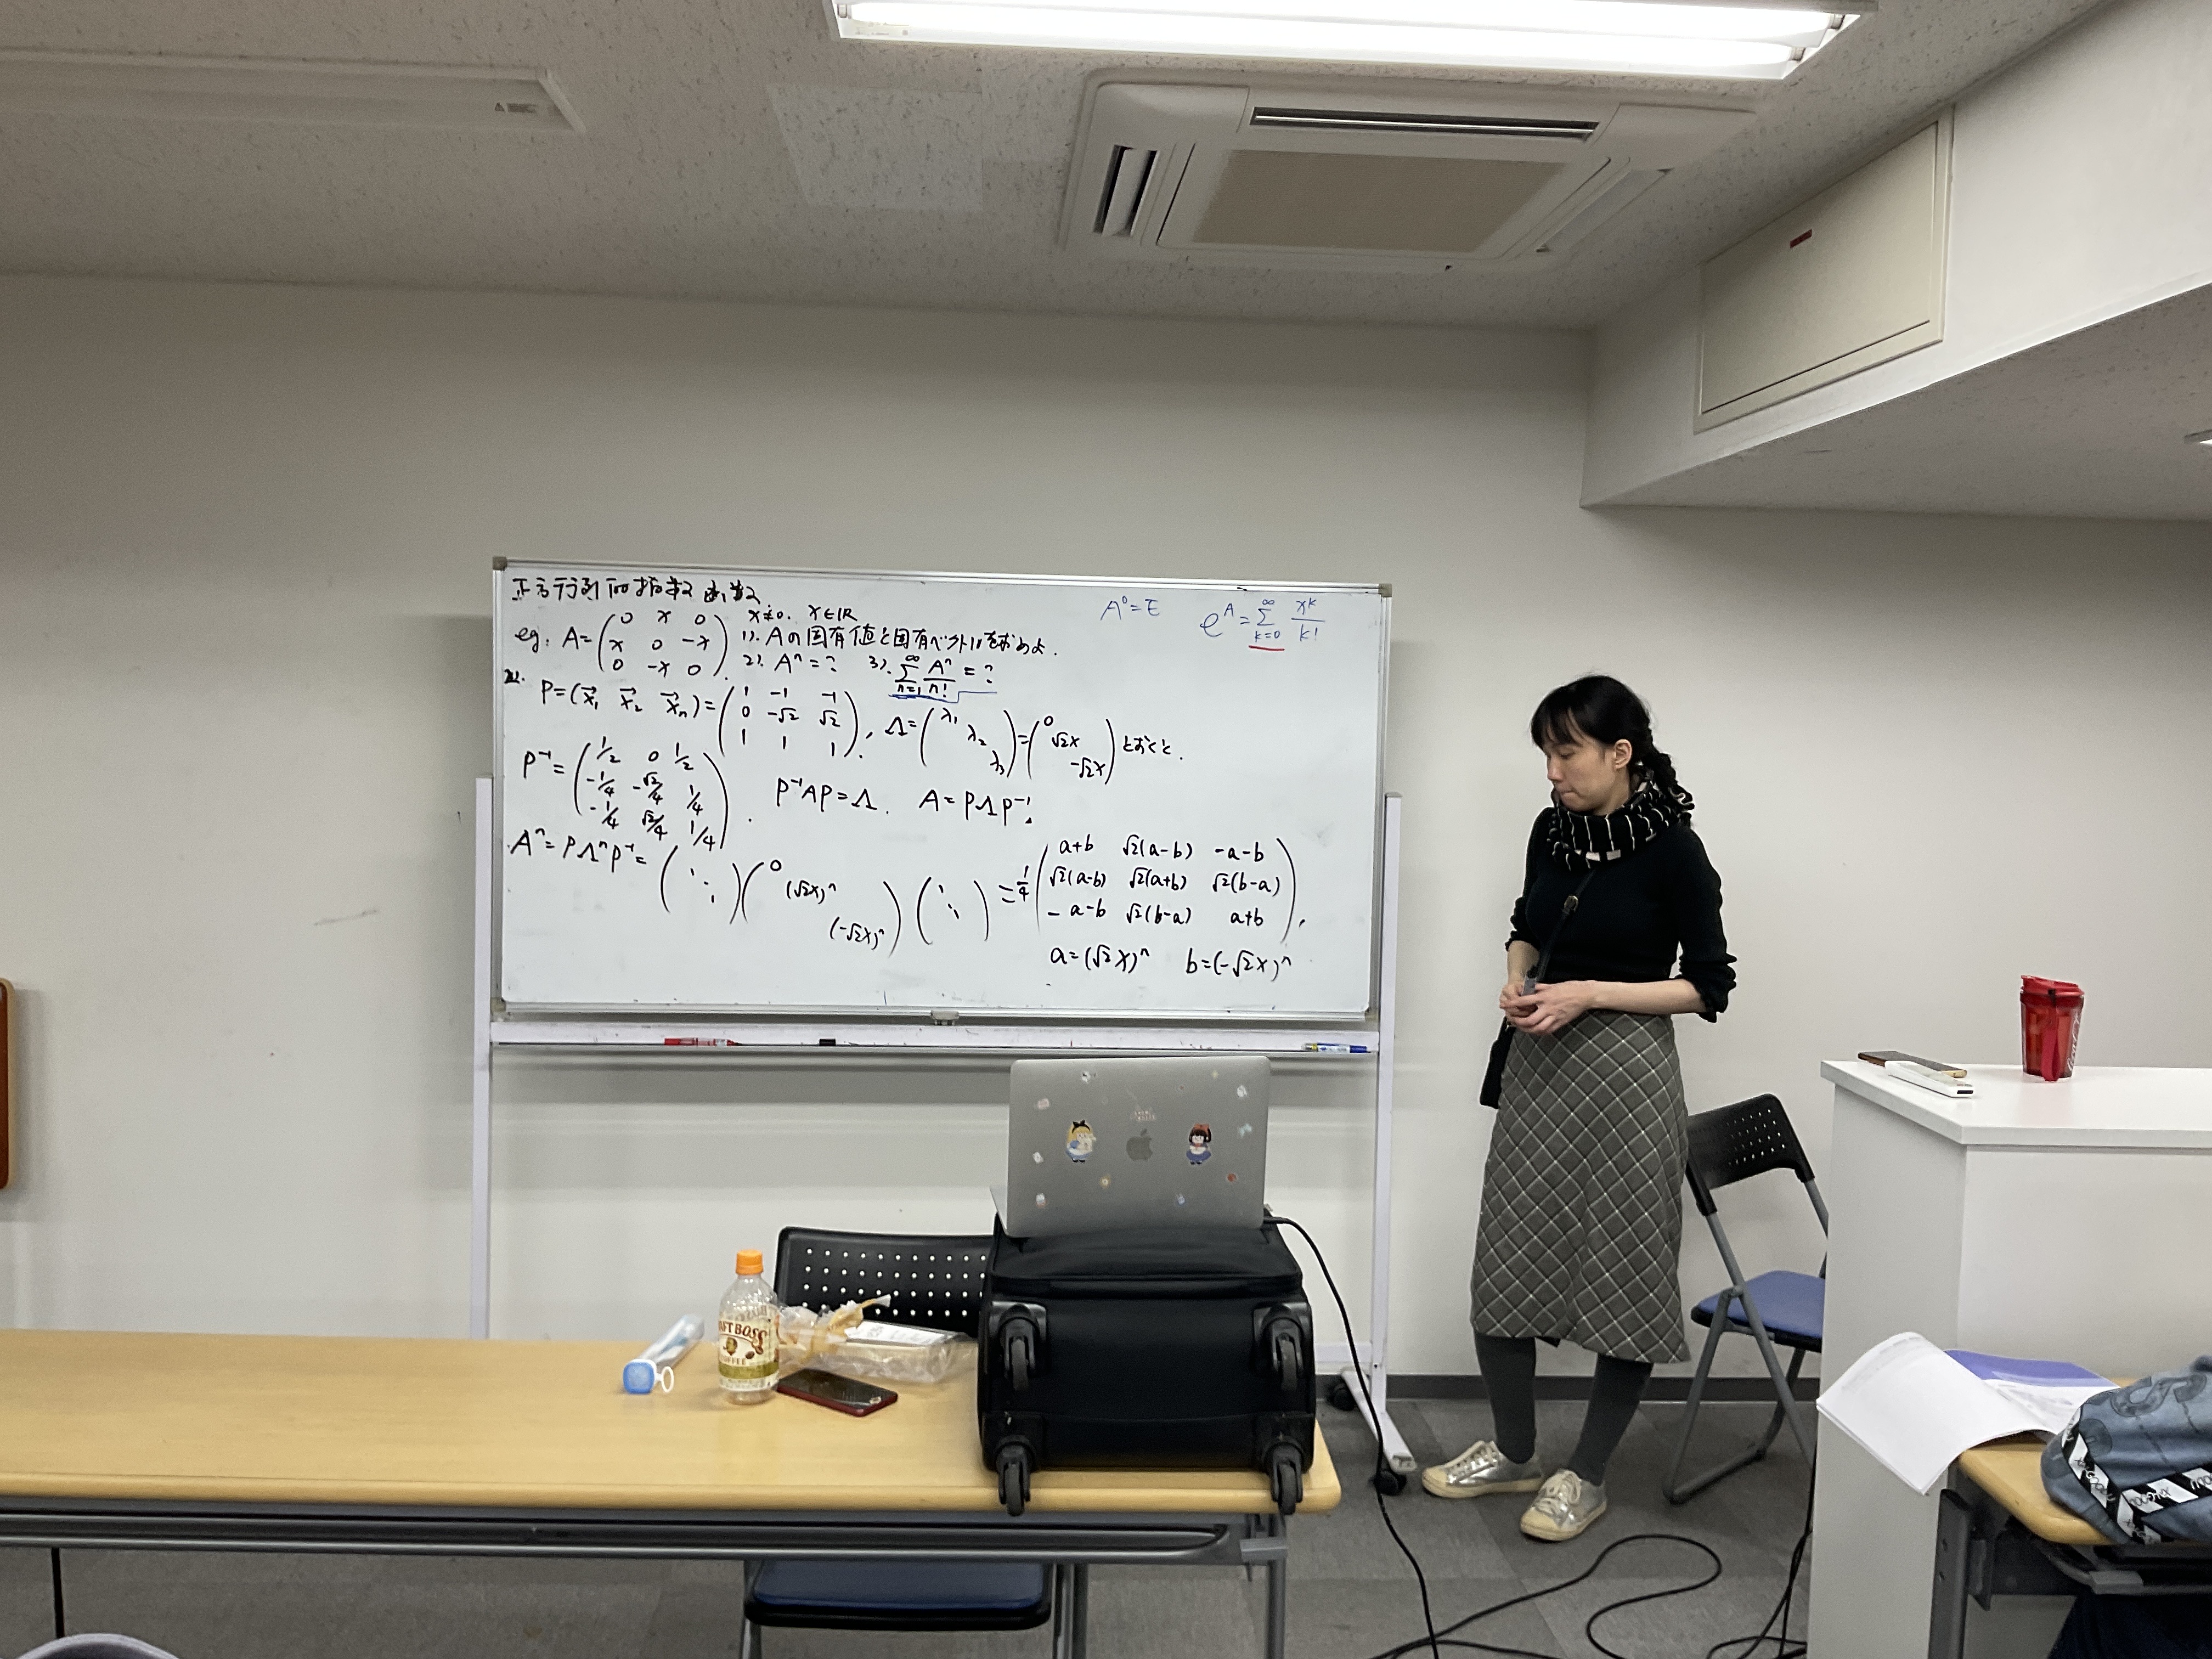 正方行列的指数函数
eg: A=(0 x 0 / x 0 -x / 0 -x 0). x≠0. x∈ℝ
1). Aの固有値と固有ベクトルを求めよ.
2). Aⁿ=? 3). ∑_{n=1}^{∞} Aⁿ/n! =?
A⁰=E e^A=∑_{k=0}^{∞} x^k/k!
P=(x⃗₁ x⃗₂ x⃗ₙ)=(1 -1 -1 / 0 -√2 √2 / 1 1 1), Λ=(λ₁ λ₂ λ₃)=(0 √2x -√2x) とおくと.
P⁻¹=(1/2 0 1/2 / -1/4 -√2/4 1/4 / -1/4 √2/4 1/4). P⁻¹AP=Λ. A=PΛP⁻¹.
Aⁿ=PΛⁿP⁻¹=(⋱)(0 (√2x)ⁿ (-√2x)ⁿ)(⋱)=1/4(a+b √2(a-b) -a-b / √2(a-b) √2(a+b) √2(b-a) / -a-b √2(b-a) a+b),
a=(√2x)ⁿ b=(-√2x)ⁿ
BOSS